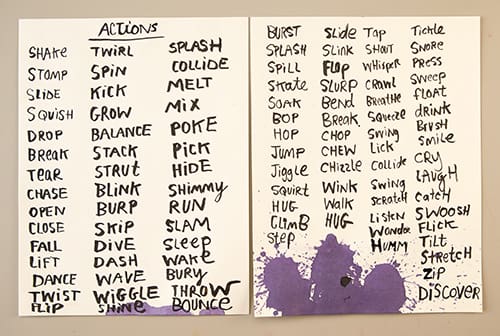 ACTIONS
SHAKE
STOMP
SLIDE
SQUISH
DROP
BREAK
TEAR
CHASE
OPEN
CLOSE
FALL
LIFT
DANCE
TWIST
FLIP
TWIRL
SPIN
KICK
GROW
BALANCE
STACK
STRUT
BLINK
BURP
SKIP
DIVE
DASH
WAVE
WIGGLE
SHINE
SPLASH
COLLIDE
MELT
MIX
POKE
PICK
HIDE
SHIMMY
RUN
SLAM
SLEEP
WAKE
BURY
THROW
BOUNCE
BURST
SPLASH
SPILL
Skate
SOAK
BOP
HOP
JUMP
Jiggle
SQUIRT
HUG
CLIMB
Step
Slide
SLINK
FLOP
SLURP
Bend
Break
CHOP
CHEW
CHizzle
WINK
Walk
HUG
Tap
SHOUT
Whisper
CRAWL
BREATHE
Squeeze
Swing
Lick
Collide
Swing
SCRATCH
LISTEN
Wonder
HUMM
Tickle
Snore
PRESS
Sweep
FLOAT
drink
Brush
Smile
CRY
LAUGH
CATCH
SWOOSH
FLICK
TILT
STRETCH
ZIP
DISCOVER